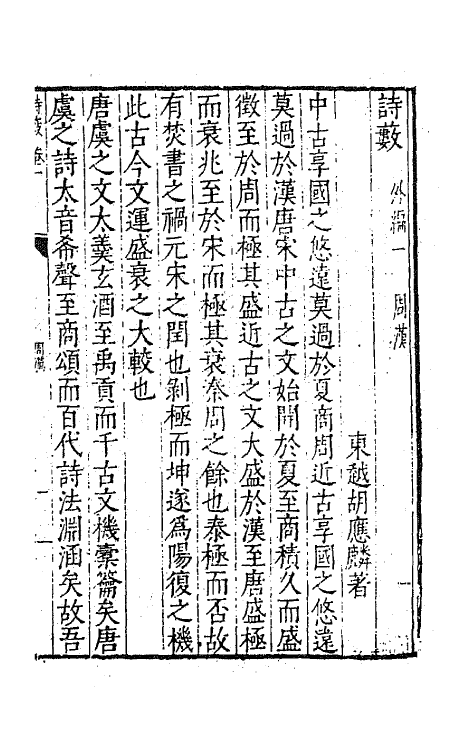 詩藪 外編一 周漢
東越胡應麟著
中古享國之悠遠莫過於夏商周近古享國之悠遠
莫過於漢唐宋中古之文始開於夏至商積久而盛
徵至於周而極其盛近古之文大盛於漢至唐盛極
而衰兆至於宋而極其衰秦周之餘也泰極而否故
有焚書之禍元宋之閏也剝極而坤遂爲陽復之機
此古今文運盛衰之大較也
唐虞之文太羹玄酒至禹貢而千古文機槖籥矣唐
虞之詩太音希聲至商頌而百代詩法淵涵矣故吾
詩藪 卷一 周漢 一